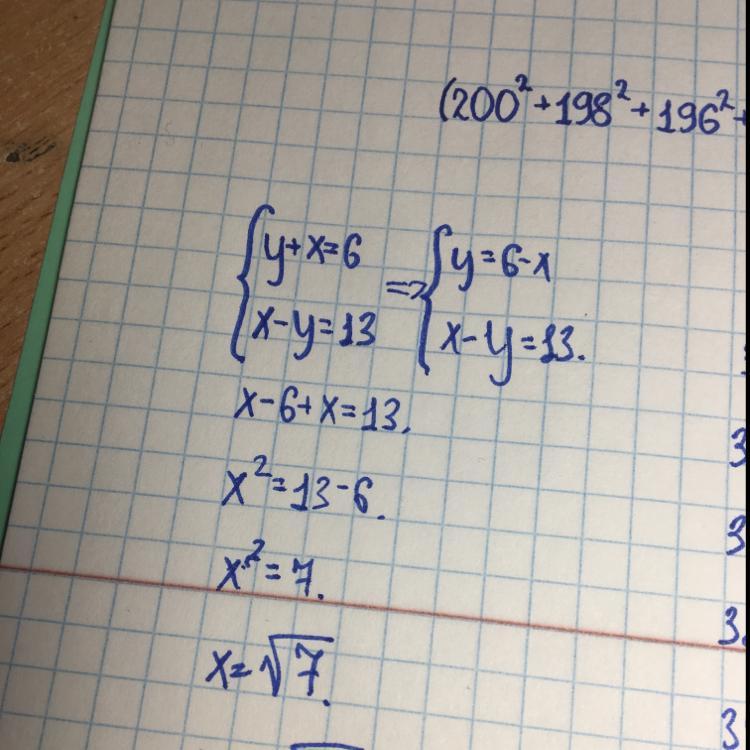 (200²+198²+196²+
{y+x=6 => {y=6-x
{x-y=13 {x-y=13.
x-6+x=13.
x²=13-6.
x²=7.
x=√7.
3
3
3.
3